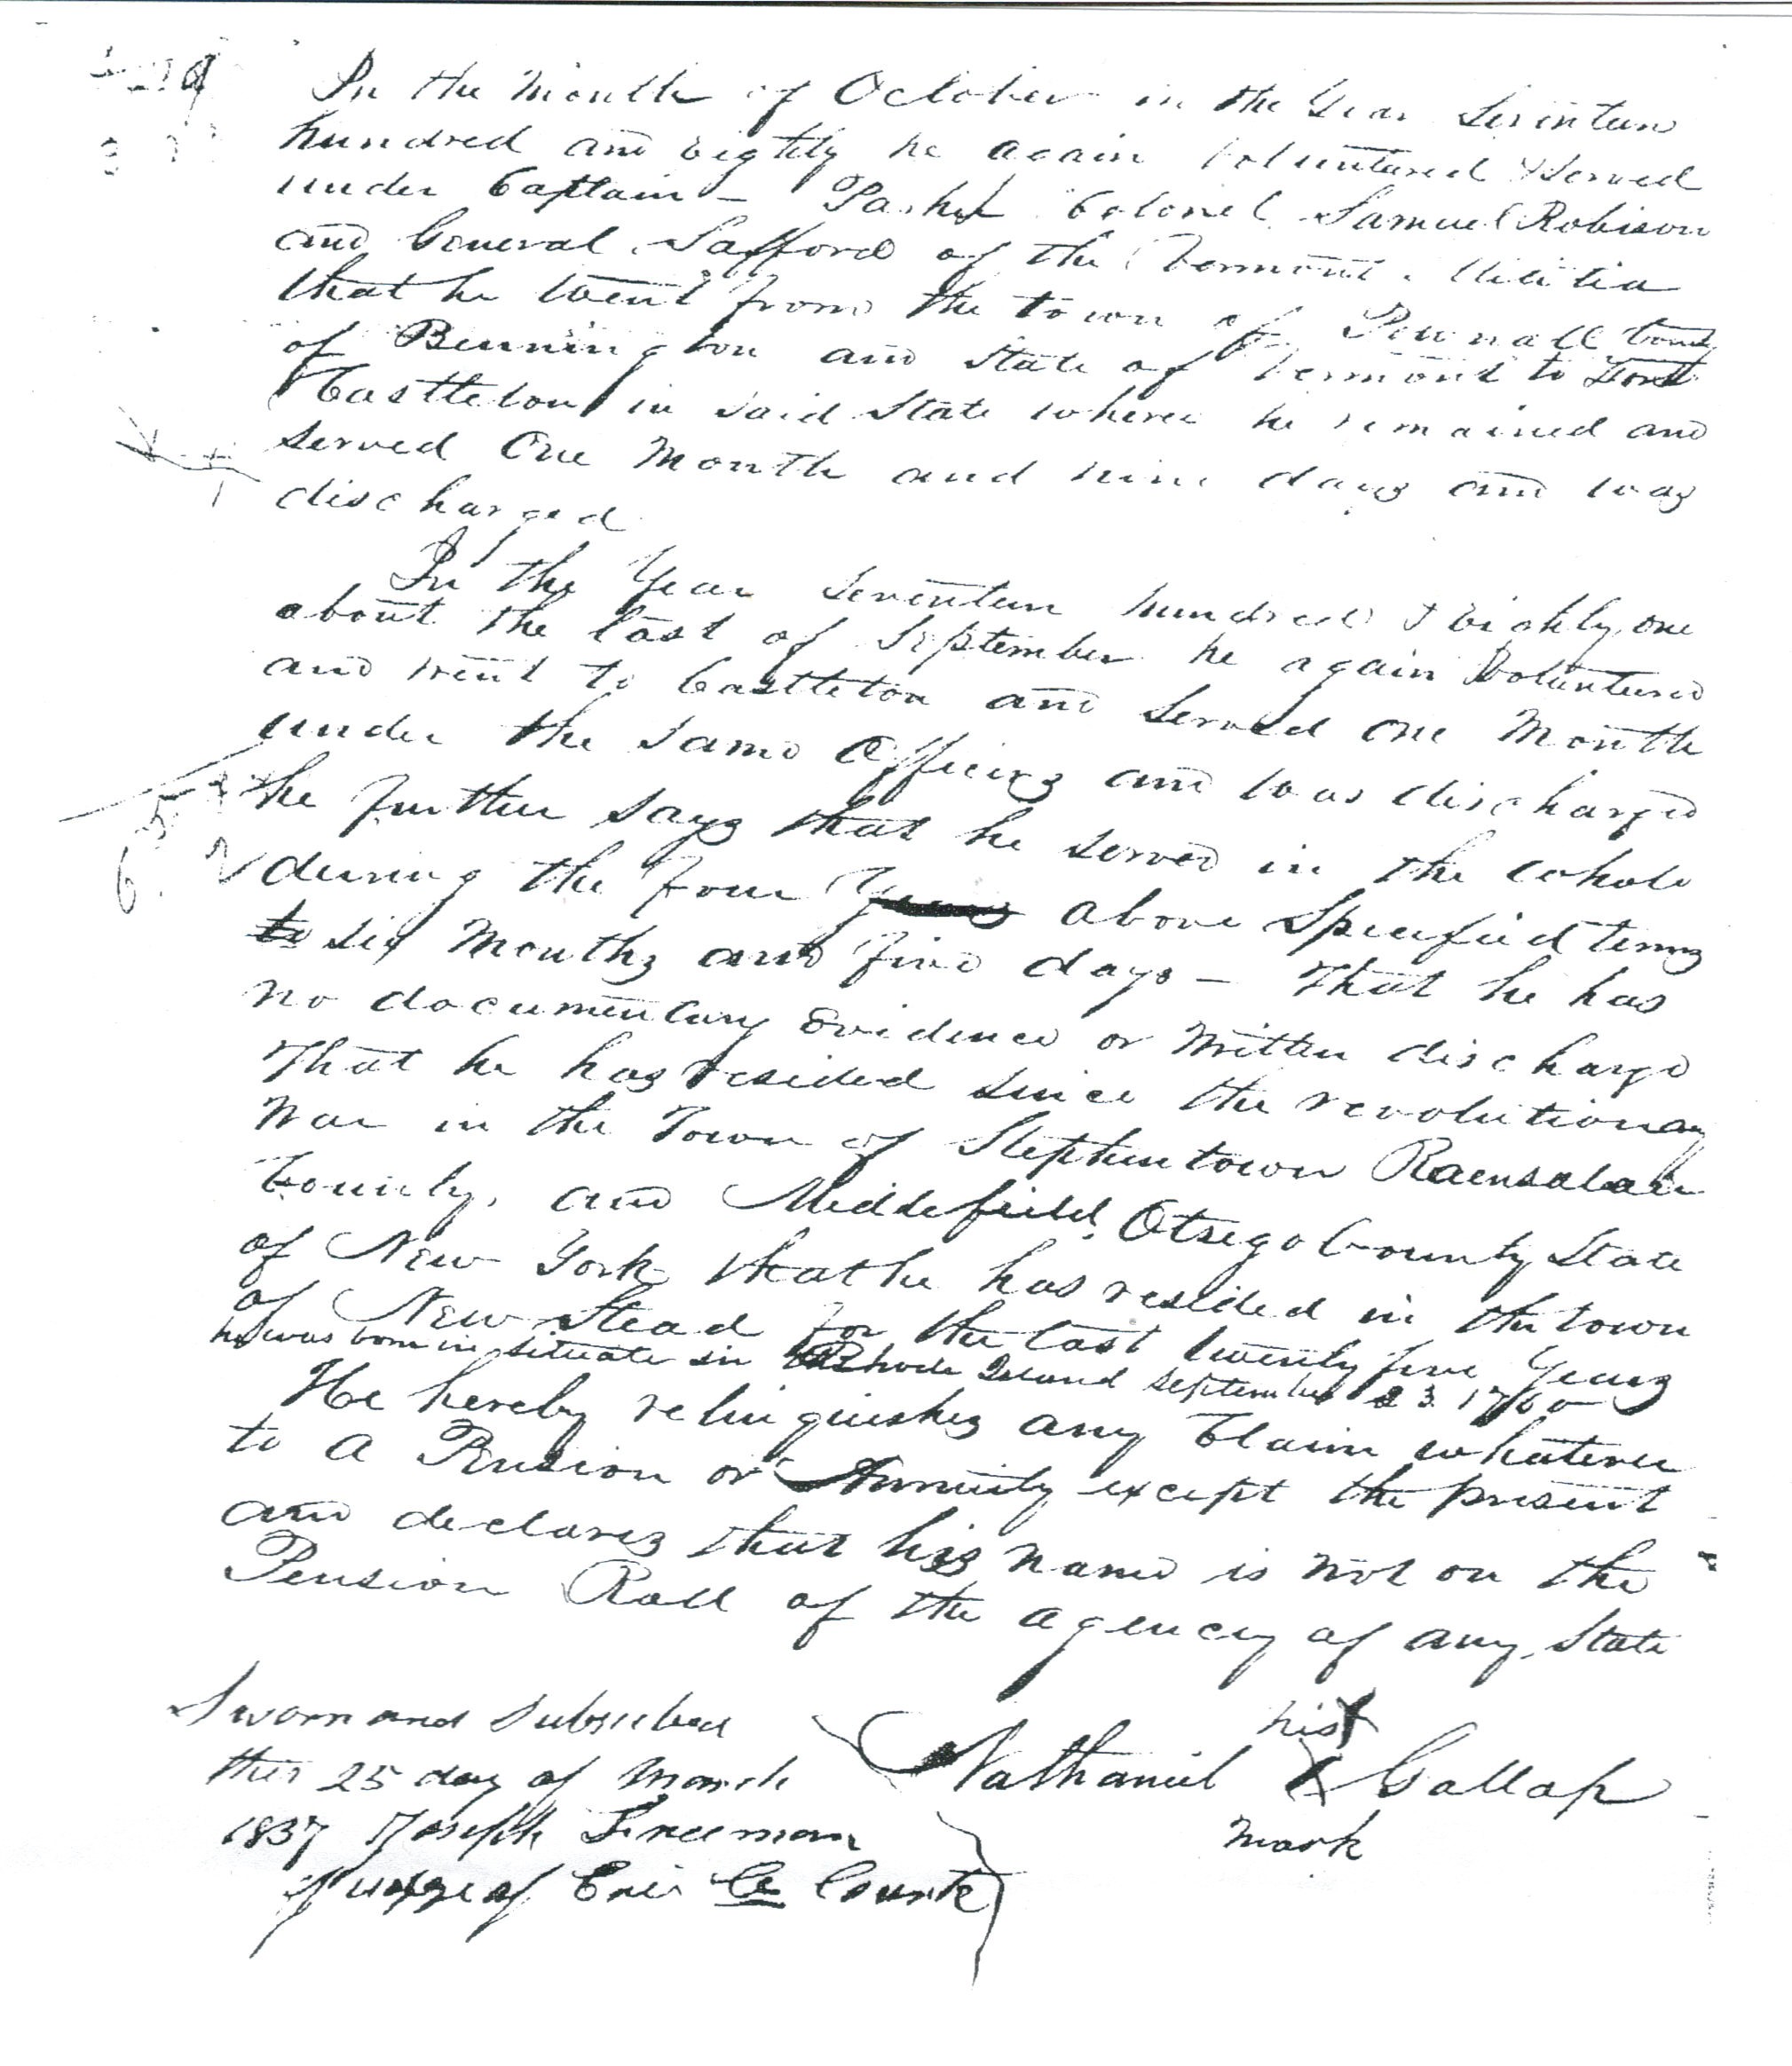 In the Month of October in the Year Seventeen
hundred and eighty he again Voluntured & Served
under Captain – Colonel Samuel Robison
and General Safford of the Vermont Militia
that he went from the town of Pownall County
of Bennington and State of Vermont to Fort
Castleton in said State where he remained and
served One Month and nine days and was
discharged
In the Year Seventeen hundred & eighty one
about the last of September he again Voluntured
and went to Castleton and Served one Month
under the same Officers and was discharged
he further says that he served in the whole
during the four Years above Specified terms
to Six Months and five days – That he has
no documentary Evidence or Written discharge
That he has resided since the revolutionary
War in the Town of Stephentown Raensalaer
County, and Middefield, Otsego County State
of New York that he has resided in the town
of New Stead for the last twenty five Years
he was born in Situate in Rhode Island September 23 1760
He hereby relinquishes any Claim whatever
to a Pension or Annuity except the present
and declares that his name is not on the
Pension Roll of the agency of any State
Sworn and Subscribed
this 25 day of March
1837 Joseph Freeman
Judge of Erie Co Courts
his
Nathaniel X Gallap
mark